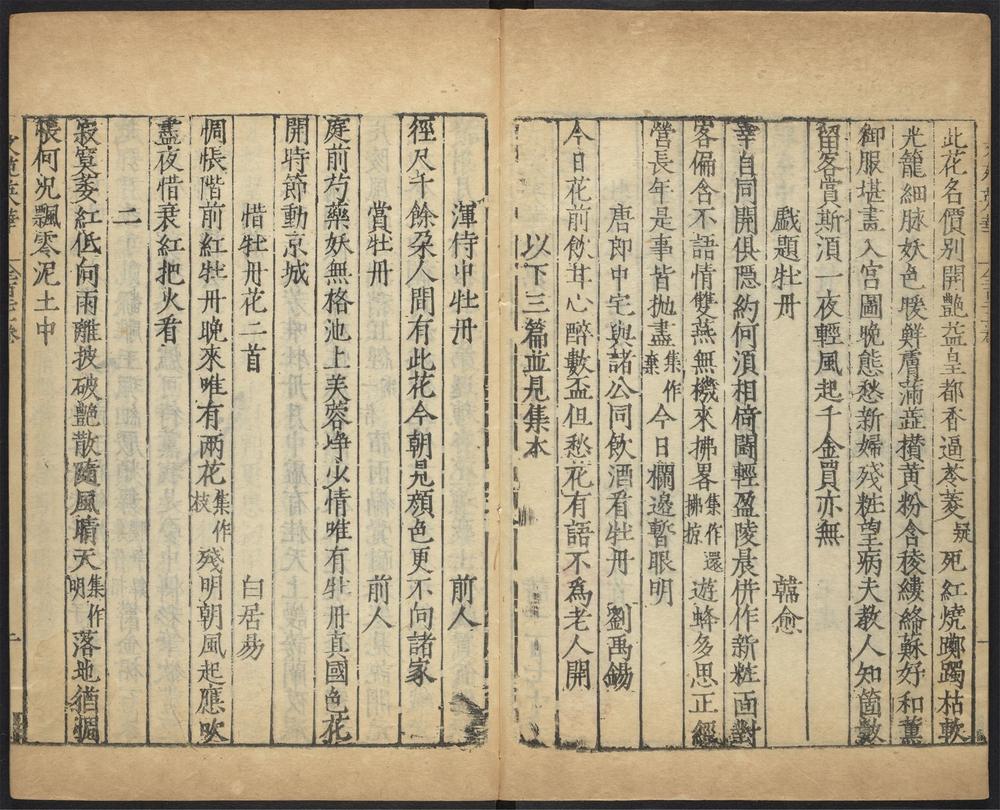 此花名價別開艷益皇都香逼苓菱疑死紅燒躑躅枯軟
光籠細脉妖色暖鮮膚滿蘂攅黃粉含稜縷絳蘇好和薰
御服堪畫入宮圖晚態愁新婦殘粧望病夫教人知箇數
留客賞斯湏一夜輕風起千金買亦無
戯題牡丹 韓愈
幸自同開俱隱約何湏相倚鬬輕盈陵晨併作新粧面對
客偏含不語情雙燕無機來拂畧集作拂掠還遊蜂多思正經
營長年是事皆拋盡集作棄今日欄邊暫眼明
唐郎中宅與諸公同飲酒看牡丹 劉禹錫
今日花前飲甘心醉數盃但愁花有語不爲老人開
以下三篇並見集本
渾侍中牡丹 前人
徑尺千餘朶人間有此花今朝見顏色更不向諸家
賞牡丹 前人
庭前芍藥妖無格池上芙蓉淨少情唯有牡丹真國色花
開時節動京城
惜牡丹花二首 白居易
惆悵階前紅牡丹晚來唯有兩花集作枝殘明朝風起應吹
盡夜惜衰紅把火看
二
寂寞萎紅低向雨離披破艷散隨風晴天集作明落地猶惆
悵何况飄零泥土中